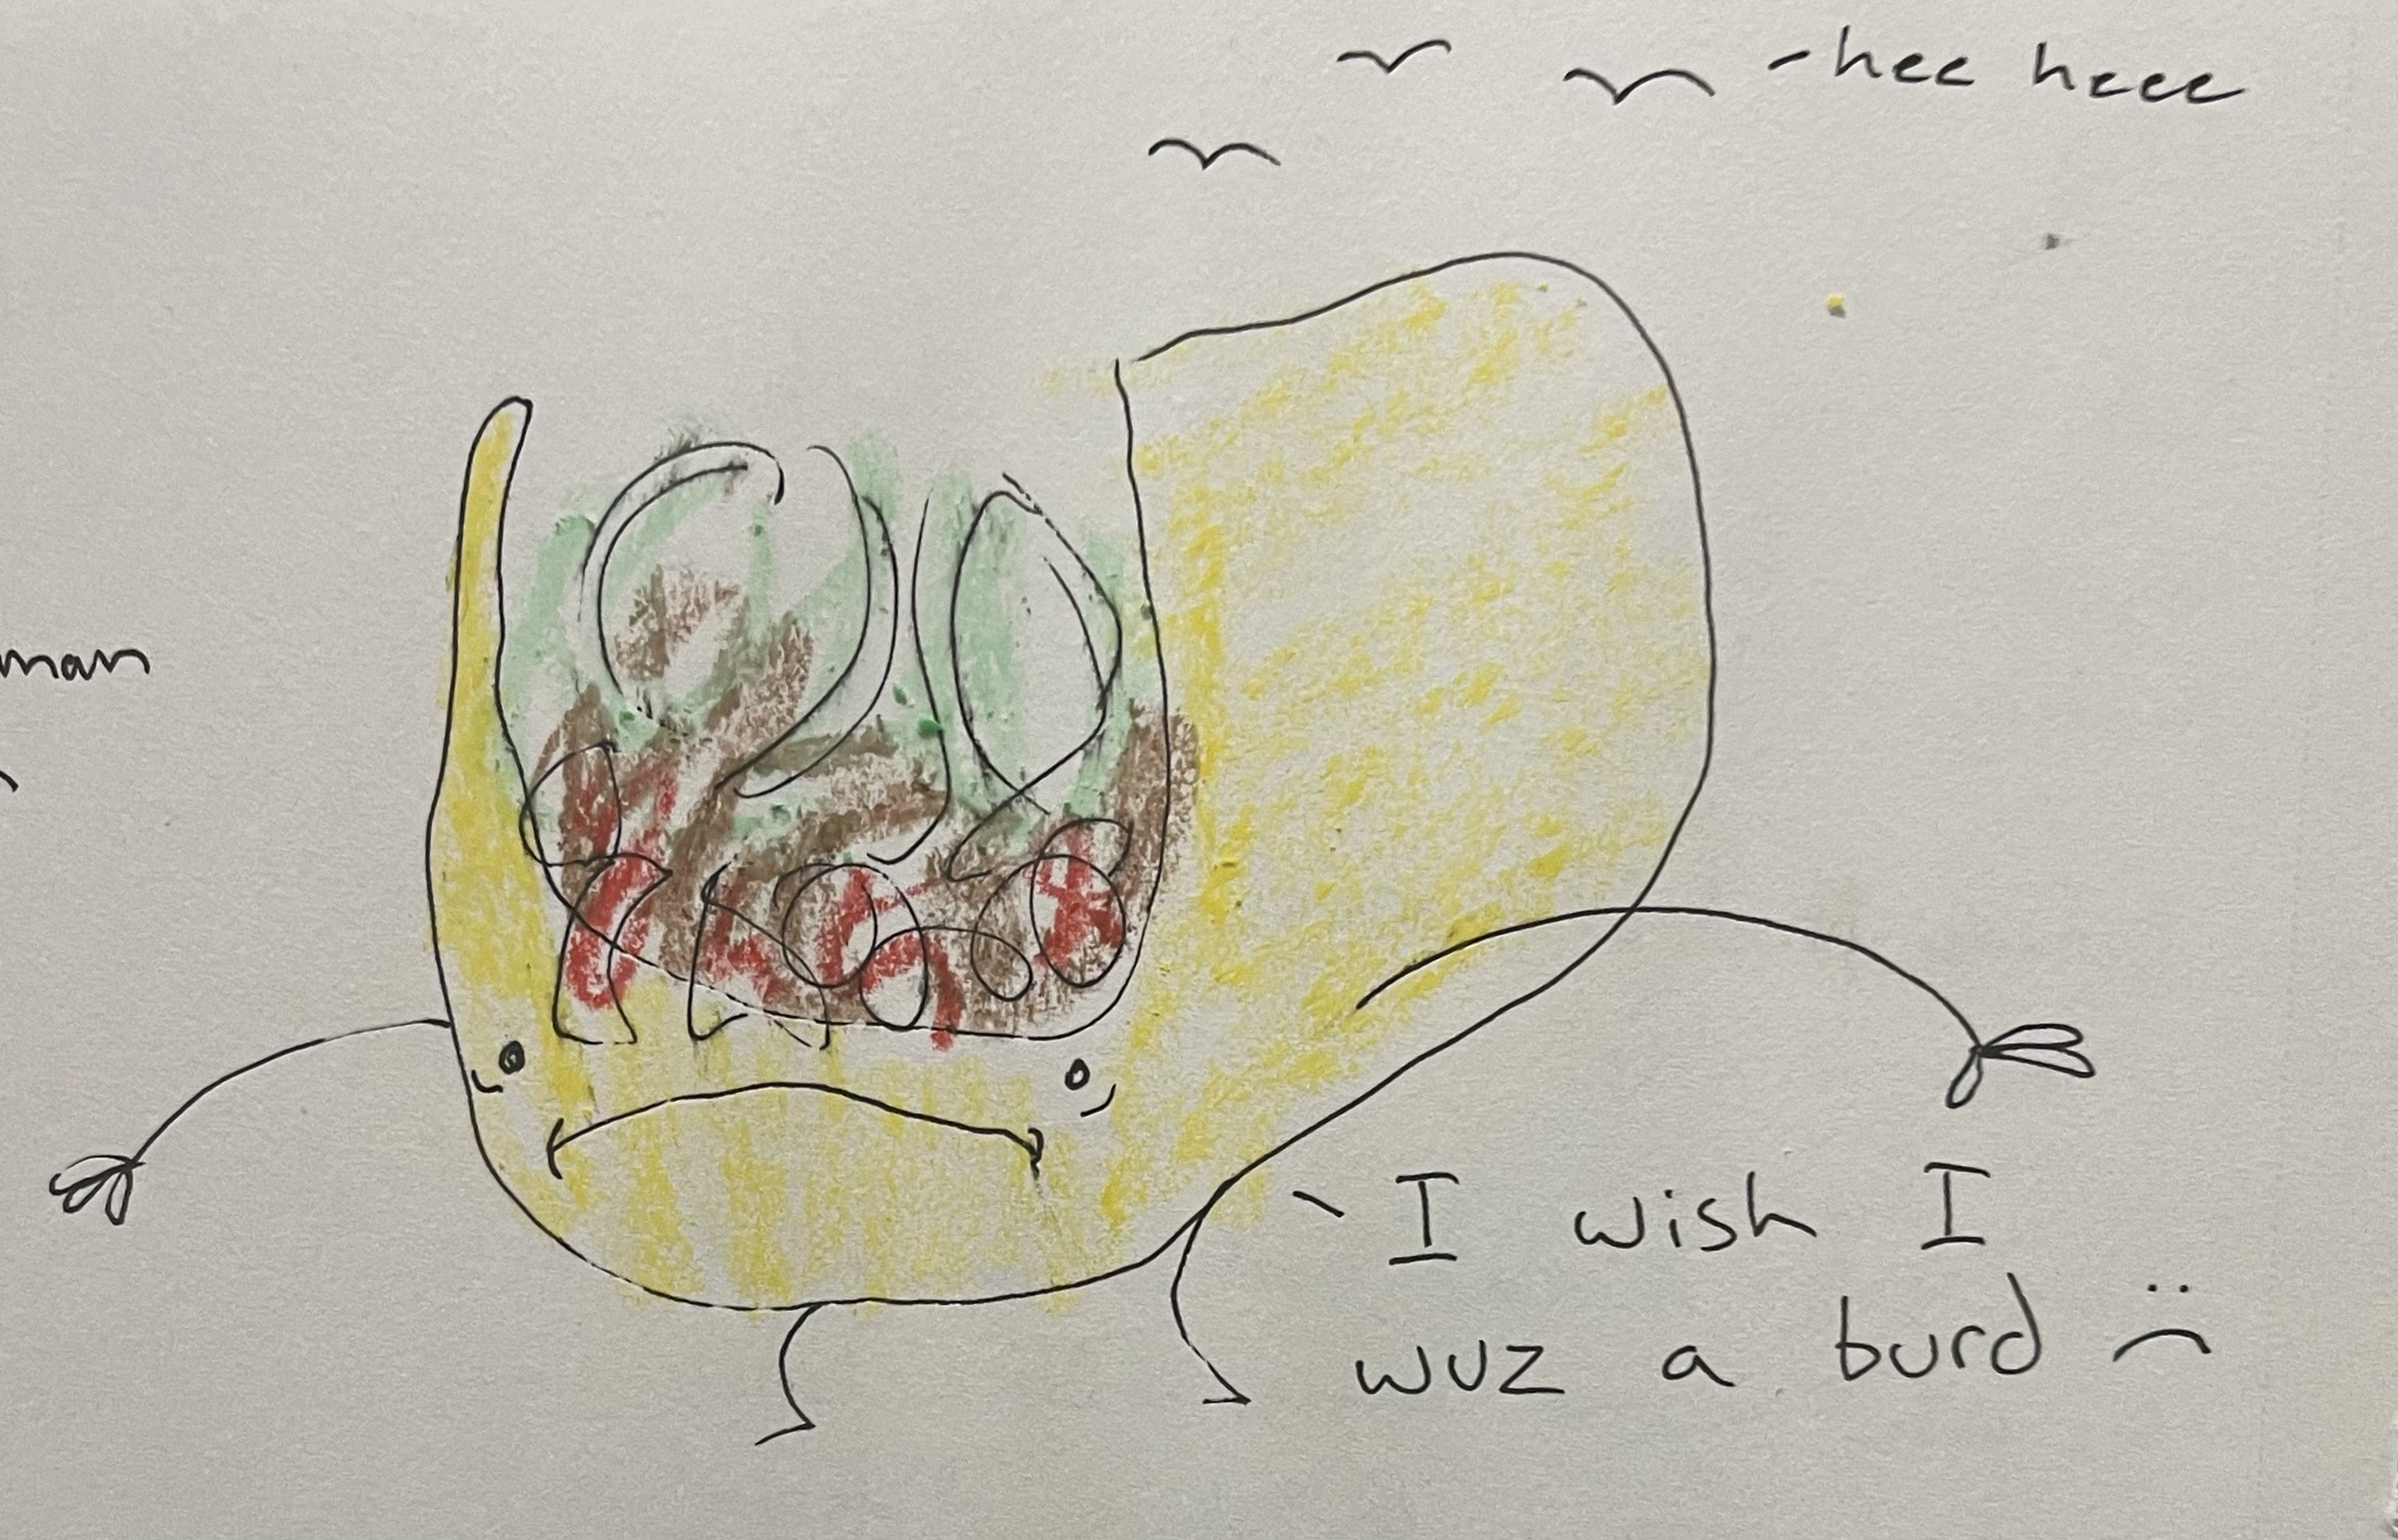 -hee heee
man
I wish I
wuz a burd :(